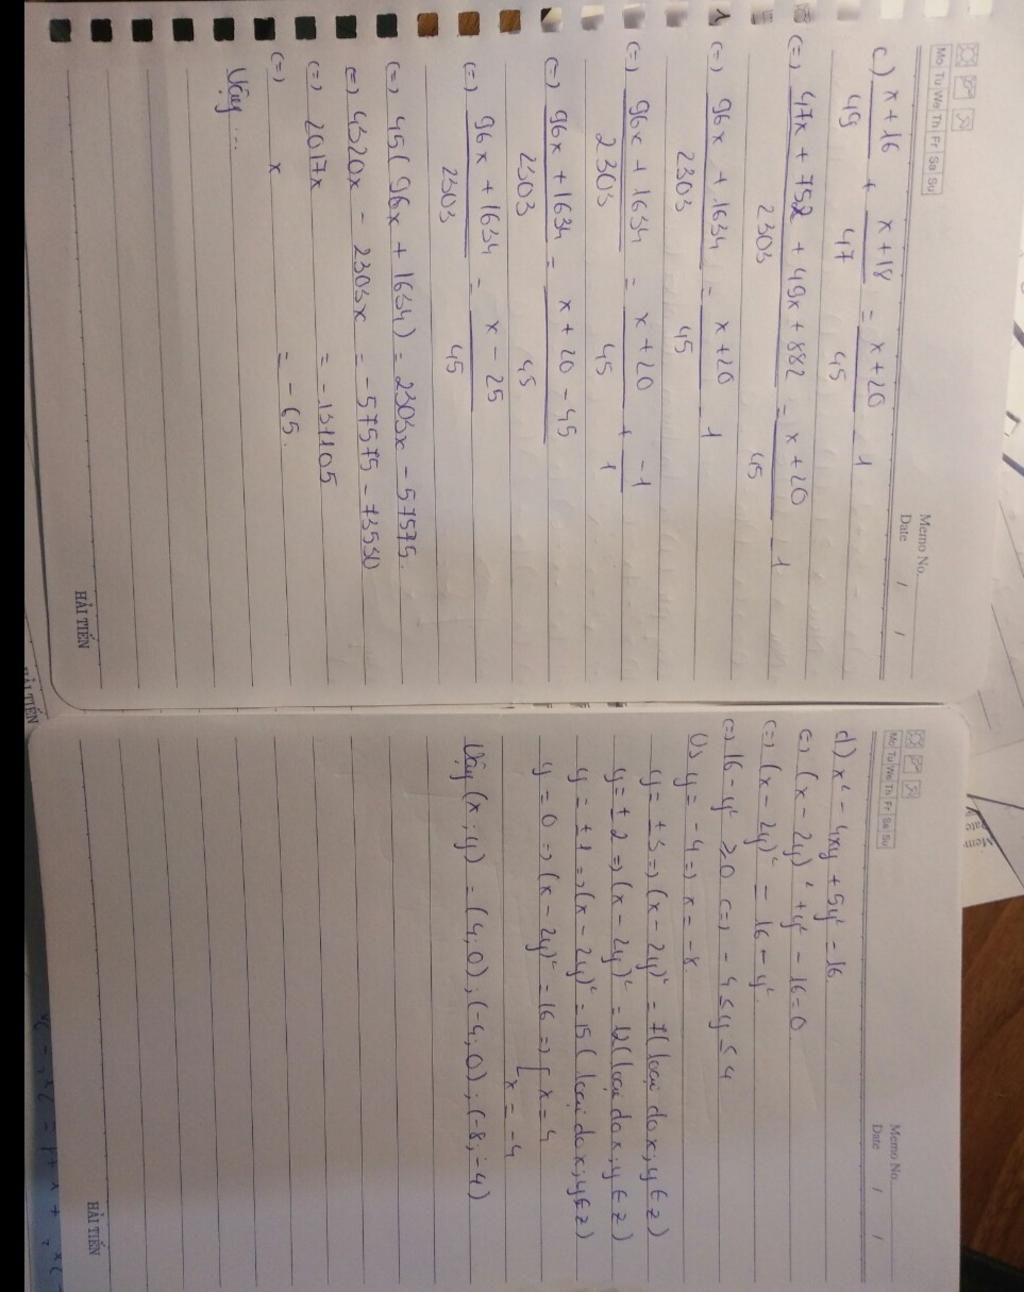 Mo Tu We Th Fr Sa Su
Memo No.
Date / /
c) x + 16 / 49 + x + 18 / 47 = x + 20 / 45 - 1
(=) 47x + 752 + 49x + 882 / 2303 = x + 20 / 45 - 1
(=) 96x + 1634 / 2303 = x + 20 / 45 - 1
(=) 96x + 1634 / 2303 = x + 20 / 45 + -1 / 1
(=) 96x + 1634 / 2303 = x + 20 - 45 / 45
(=) 96x + 1634 / 2303 = x - 25 / 45
(=) 45(96x + 1634) = 2303x - 57575.
(=) 4320x - 2303x = -57575 - 73530
(=) 2017x = -131105
(=) x = -65.
Vậy ...
HẢI TIẾN
Mo Tu We Th Fr Sa Su
Memo No.
Date / /
d) x² - 4xy + 5y² = 16.
(=) (x - 2y)² + y² - 16 = 0
(=) (x - 2y)² = 16 - y²
(=) 16 - y² ≥ 0 (=) -4 ≤ y ≤ 4
Vs y = -4 => x = -8
y = ±3 => (x - 2y)² = 7 (loại do x;y ∈ z)
y = ±2 => (x - 2y)² = 12 (loại do x;y ∈ z)
y = ±1 => (x - 2y)² = 15 (loại do x;y ∈ z)
y = 0 => (x - 2y)² = 16 => [ x = 4
x = -4
Vậy (x;y) = (4;0);(-4;0);(-8;-4)
HẢI TIẾN
HẢI TIẾN